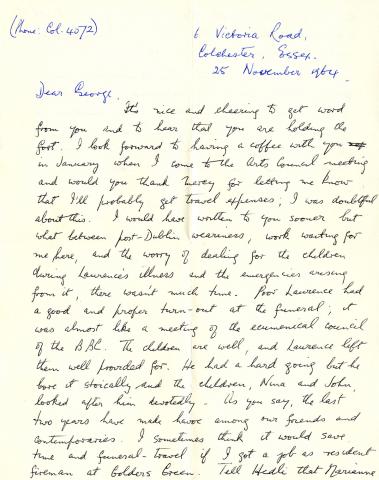 (Phone: Col. 4072)
6 Victoria Road,
Colchester, Essex.
25 November 1964.
Dear George,
It's nice and cheering to get word
from you and to hear that you are holding the
fort. I look forward to having a coffee with you
in January when I come to the Arts Council meeting
and would you thank Mercy for letting me know
that I'll probably get travel expenses; I was doubtful
about this. I would have written to you sooner but
what between post-Dublin weariness, work waiting for
me here, and the worry of dealing for the children
during Laurence's illness and the emergencies arising
from it, there wasn't much time. Poor Laurence had
a good and proper turn-out at the funeral; it
was almost like a meeting of the ecumenical council
of the BBC. The children are well, and Laurence left
them well provided for. He had a hard going but he
bore it stoically and the children, Nina and John,
looked after him devotedly. As you say, the last
two years have made havoc among our friends and
contemporaries. I sometimes think it would save
time and funeral-travel if I got a job as resident
fireman at Golders Green. Tell Hedli that Marianne